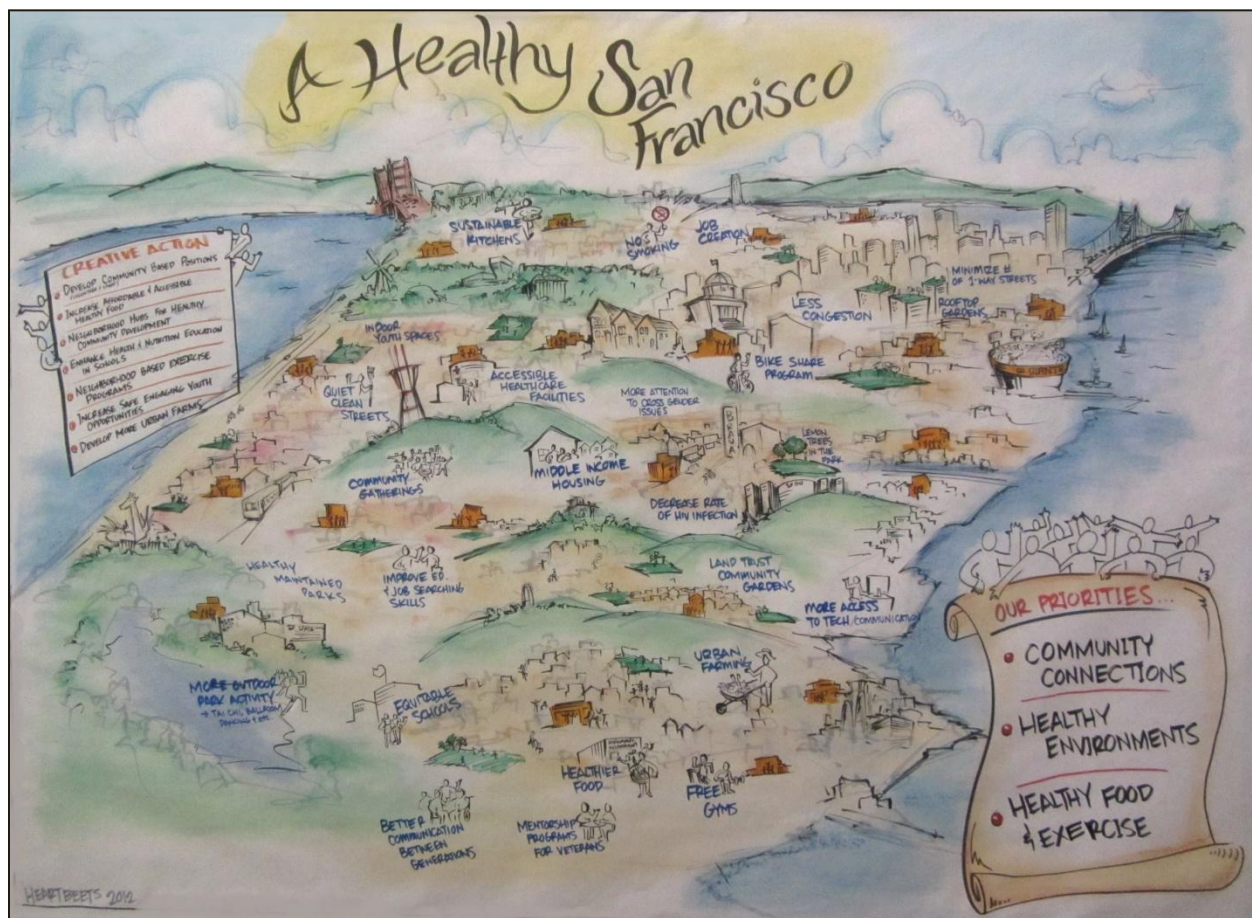 A Healthy San
Francisco
CREATIVE ACTION
DEVELOP COMMUNITY BASED POSITIONS
INCREASE AFFORDABLE & ACCESSIBLE
HEALTHY FOOD
NEIGHBORHOOD HUBS FOR HEALTHY
COMMUNITY DEVELOPMENT
ENHANCE HEALTH & NUTRITION EDUCATION
IN SCHOOLS
NEIGHBORHOOD BASED EXERCISE
PROGRAMS
INCREASE SAFE ENGAGING YOUTH
OPPORTUNITIES
DEVELOP MORE URBAN FARMS
SUSTAINABLE
KITCHENS
NO
SMOKING
JOB
CREATION
MINIMIZE #
OF 1-WAY STREETS
LESS
CONGESTION
ROOFTOP
GARDENS
GIANTS
INDOOR
YOUTH SPACES
QUIET
CLEAN
STREETS
ACCESSIBLE
HEALTHCARE
FACILITIES
BIKE SHARE
PROGRAM
MORE ATTENTION
TO CROSS GENDER
ISSUES
LEMON
TREES
IN THE
PARK
COMMUNITY
GATHERINGS
MIDDLE INCOME
HOUSING
DECREASE RATE
OF HIV INFECTION
HEALTHY
MAINTAINED
PARKS
IMPROVE ED.
& JOB SEARCHING
SKILLS
LAND TRUST
COMMUNITY
GARDENS
MORE ACCESS
TO TECH/COMMUNICATION
MORE OUTDOOR
PARK ACTIVITY
→ TAI CHI, BALLROOM
DANCING & ETC.
EQUITABLE
SCHOOLS
URBAN
FARMING
HEALTHIER
FOOD
FREE
GYMS
BETTER
COMMUNICATION
BETWEEN
GENERATIONS
MENTORSHIP
PROGRAMS
FOR VETERANS
OUR PRIORITIES...
COMMUNITY
CONNECTIONS
HEALTHY
ENVIRONMENTS
HEALTHY FOOD
& EXERCISE
HEARTBEETS 2012